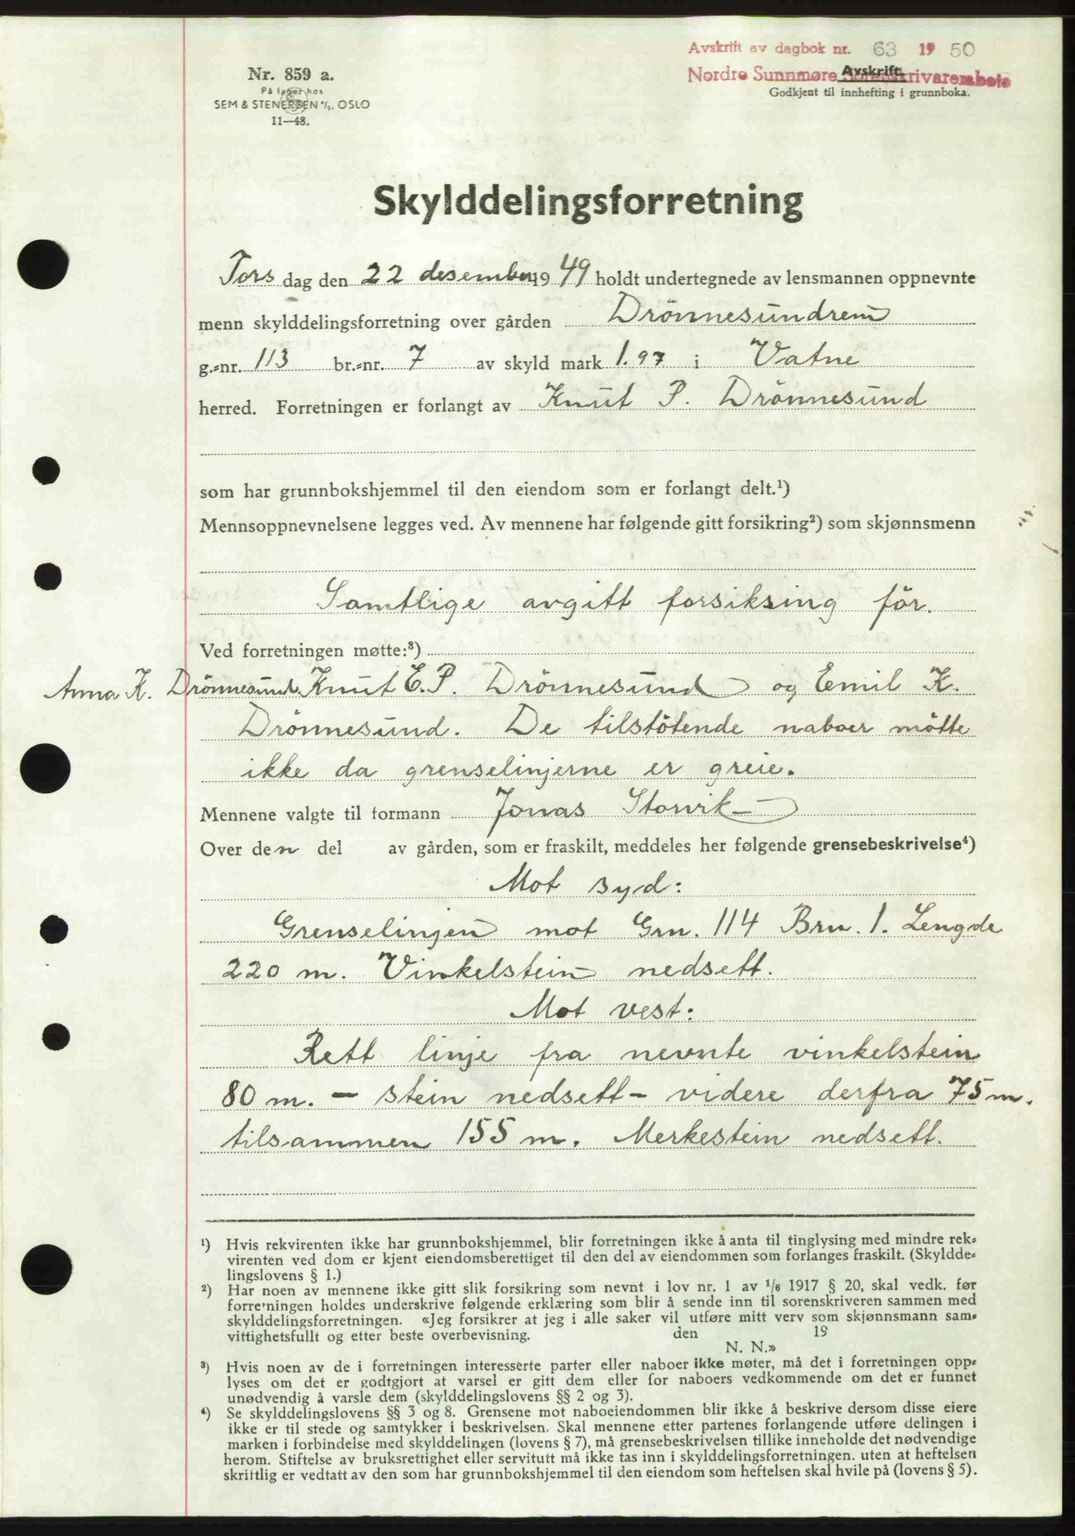 Avskrift av dagbok nr. 63 1950
Nordre Sunnmøre Sorenskrivarembete
Avskrift.
Godkjent til innhefting i grunnboka.
Nr. 859 a.
På lager hos
SEM & STENERSEN A/S. OSLO
11—48.
Skylddelingsforretning
Tors dag den 22 desember 1949 holdt undertegnede av lensmannen oppnevnte
menn skylddelingsforretning over gården Drönnesundrem
g.-nr. 113 br.-nr. 7 av skyld mark 1.97 i Vatne
herred. Forretningen er forlangt av Knut P. Drönnesund
som har grunnbokshjemmel til den eiendom som er forlangt delt.¹)
Mennsoppnevnelsene legges ved. Av mennene har følgende gitt forsikring²) som skjønnsmenn
Samtlige avgitt forsiksing för.
Ved forretningen møtte:³)
Anna K. Drönnesund, Knut E. P. Drönnesund og Emil K.
Drönnesund. De tilstötende naboer mötte
ikke da grenselinjerne er greie.
Mennene valgte til formann Jonas Storvik
Over den del av gården, som er fraskilt, meddeles her følgende grensebeskrivelse⁴)
Mot syd:
Grenselinjen mot Grn. 114 Brn. 1. Lengde
220 m. Vinkelstein nedsett.
Mot vest:
Rett linje fra nevnte vinkelstein
80 m. - stein nedsett - videre derfra 75 m.
tilsammen 155 m. Merkestein nedsett.
¹) Hvis rekvirenten ikke har grunnbokshjemmel, blir forretningen ikke å anta til tinglysing med mindre rek-
virenten ved dom er kjent eiendomsberettiget til den del av eiendommen som forlanges fraskilt. (Skyldde-
lingslovens § 1.)
²) Har noen av mennene ikke gitt slik forsikring som nevnt i lov nr. 1 av 1/6 1917 § 20, skal vedk. før
forretningen holdes underskrive følgende erklæring som blir å sende inn til sorenskriveren sammen med
skylddelingsforretningen. «Jeg forsikrer at jeg i alle saker vil utføre mitt verv som skjønnsmann sam-
vittighetsfullt og etter beste overbevisning. den 19
N. N.»
³) Hvis noen av de i forretningen interesserte parter eller naboer ikke møter, må det i forretningen opp-
lyses om det er godtgjort at varsel er gitt dem eller for naboers vedkommende om det er funnet
unødvendig å varsle dem (skylddelingslovens §§ 2 og 3).
⁴) Se skylddelingslovens §§ 3 og 8. Grensene mot naboeiendommen blir ikke å beskrive dersom disse eiere
ikke er til stede og samtykker i beskrivelsen. Skal mennene etter partenes forlangende utføre delingen i
marken i forbindelse med skylddelingen (lovens § 7), må grensebeskrivelsen tillike inneholde det nødvendige
herom. Stiftelse av bruksrettighet eller servitutt må ikke tas inn i skylddelingsforretningen. uten at heftelsen
skriftlig er vedtatt av den som har grunnbokshjemmel til den eiendom som heftelsen skal hvile på (lovens § 5).